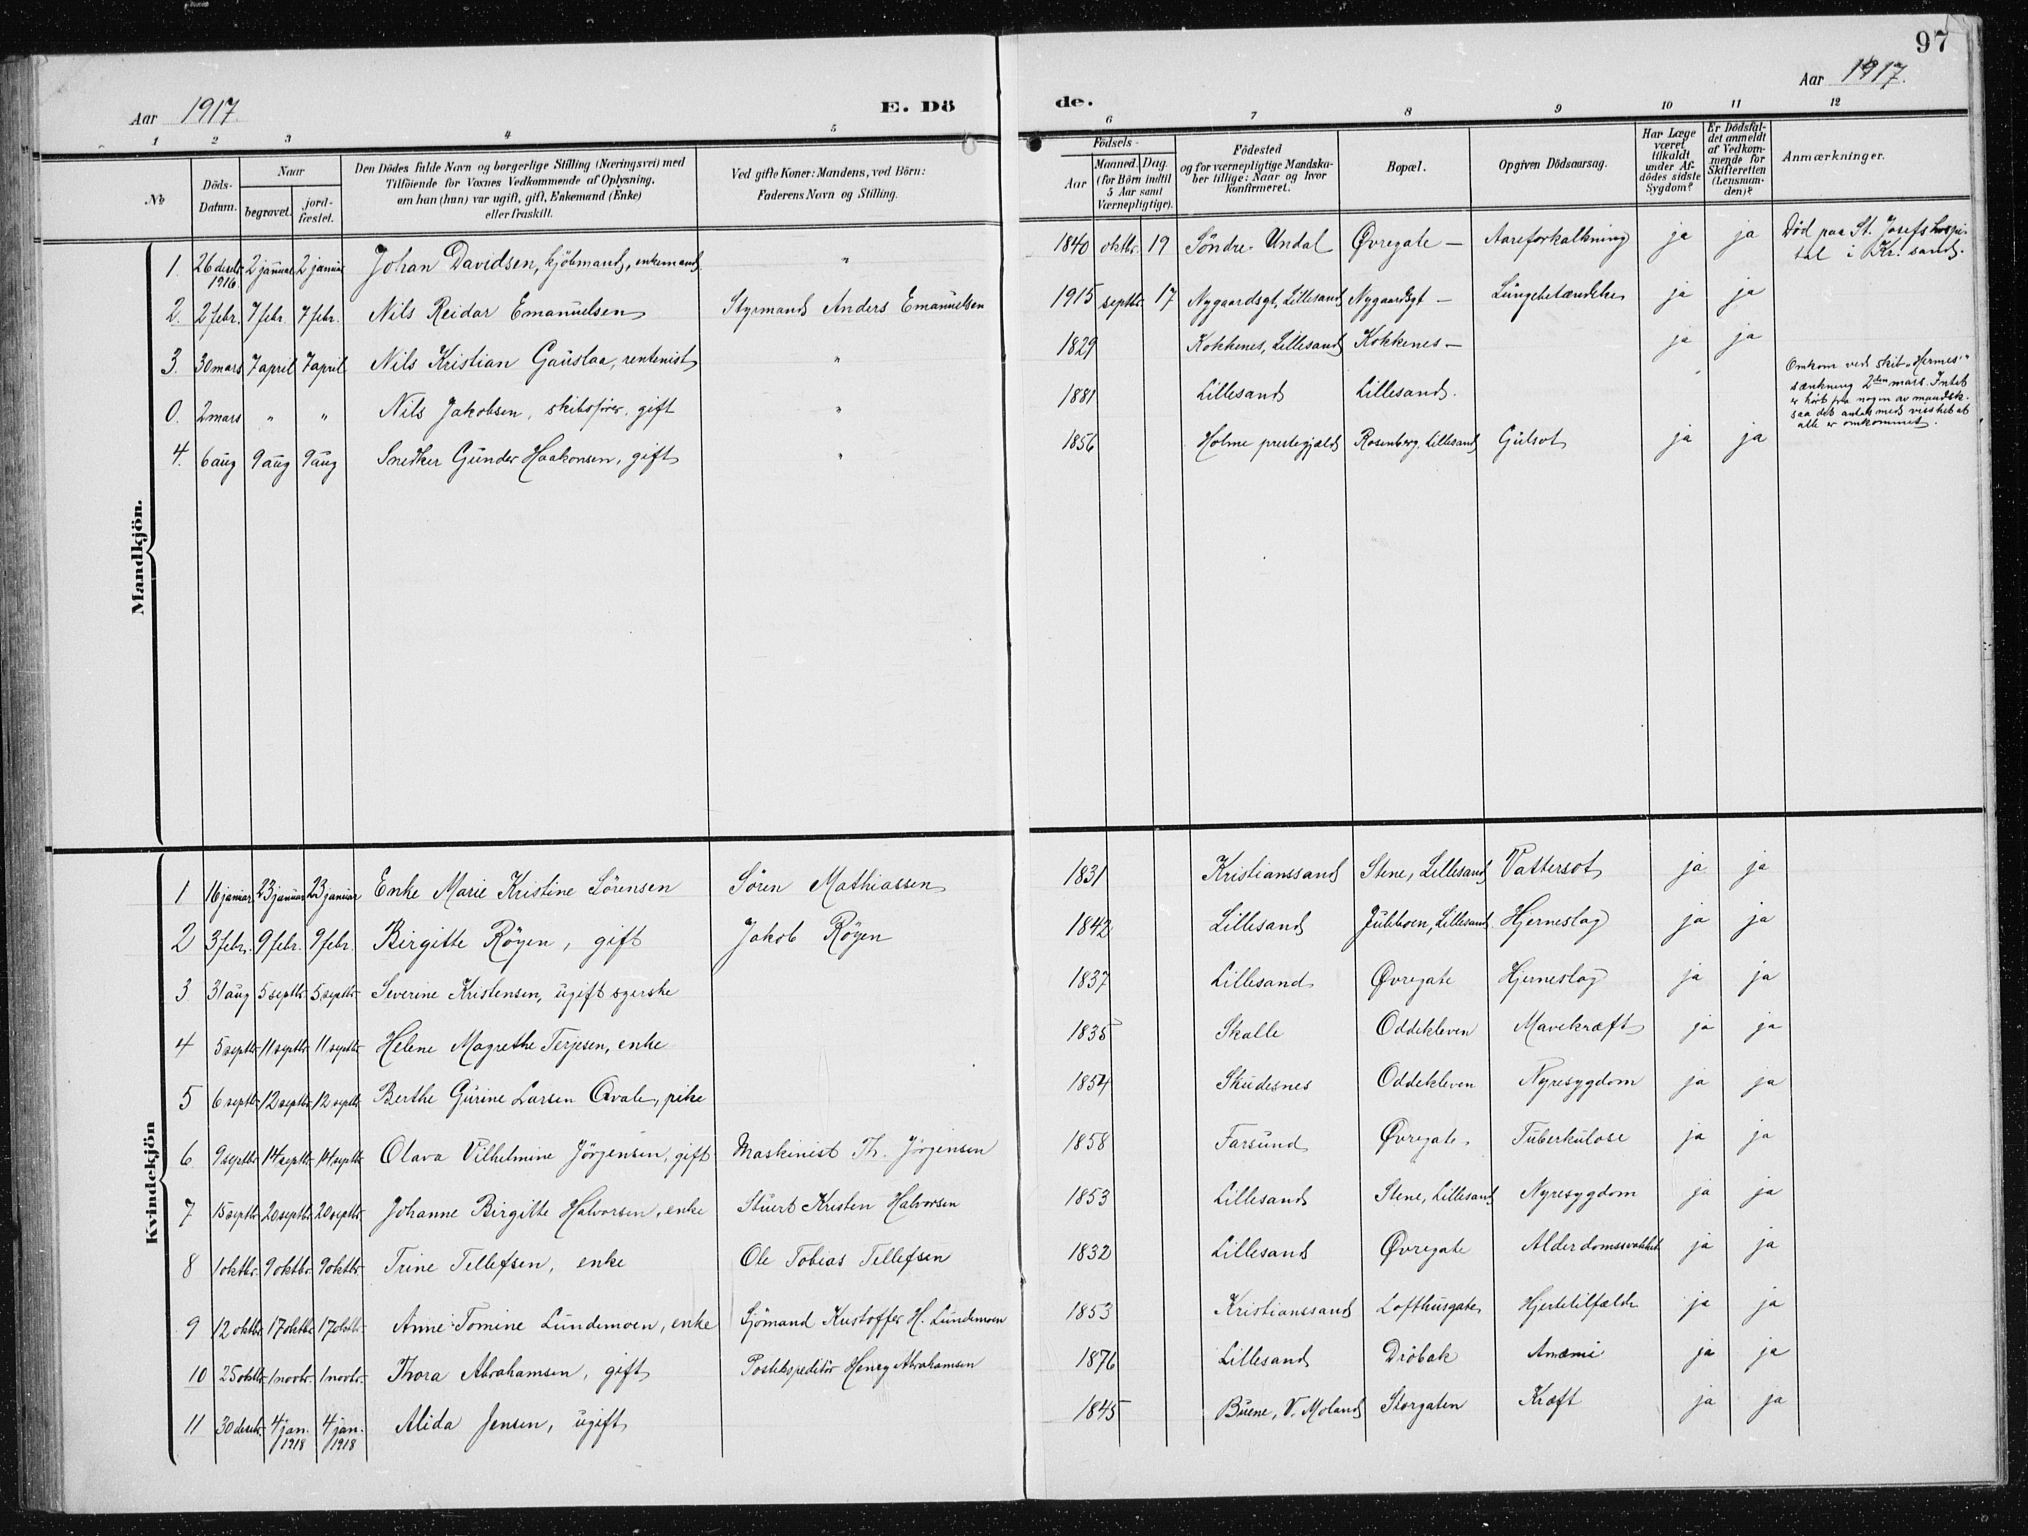 97
Aar 1917. E. Dö de. Aar 1917.
1 2 3 4 5 6 7 8 9 10 11 12
No
Döds-
Datum.
Naar
begravet.
jord-
fæstet.
Den Dödes fulde Navn og borgerlige Stilling (Næringsvei) med
Tilföiende for Voxnes Vedkommende af Oplysning,
om han (hun) var ugift, gift, Enkemand (Enke)
eller fraskilt.
Ved gifte Koner: Mandens, ved Börn:
Faderens Navn og Stilling.
Födsels-
Aar
Maaned. Dag.
(for Börn indtil
5 Aar samt
Værnepligtige).
Födested
og for værnepligtige Mandska-
ber tillige: Naar og hvor
konfirmeret.
Bopæl.
Opgiven Dödsaarsag.
Har Læge
været
tilkaldt
under Af-
dödes sidste
Sygdom?
Er Dödsfal-
det anmeldt
af Vedkom-
mende for
Skifteretten
(Lensman-
den)?
Anmærkninger.
Mandkjön.
1 26 decbr. 1916 2 januar 2 januar Johan Davidsen, kjöbmand, enkemand " 1840 oktbr. 19 Söndre Undal Øvregate — Aareforkalkning ja ja Död paa St. Josefs hospi-
tal i Kr.sand.
2. 2 febr. 7 febr. 7 febr. Nils Reidar Emanuelsen Styrmand Anders Emanuelsen 1915 septbr. 17 Nygaardsgt, Lillesand Nygaardsgt — Lungebetændelse ja ja
3. 30 mars 7 april 7 april Nils Kristian Gauslaa, rentenist " 1829 Kokkenes, Lillesand Kokkenes — ja ja
0. 2 mars " " Nils Jakobsen, skibsförer, gift " 1881 Lillesand Lillesand. Omkom ved skib "Hermes'"
sænkning 2den mars. Intet
er hört fra nogen av mandsk.
saa det antas med visshet at
alle er omkommet.
4. 6 aug 9 aug 9 aug Snedker Gunder Haakonsen, gift " 1856 Holme prestegjæld Rosenberg, Lillesand Gulsot ja ja
Kvindekjön
1 16 januar 23 januar 23 januar Enke Marie Kristine Sørensen Søren Mathiassen 1831 Kristianssand Stene, Lillesand Vattersot ja ja
2 3 febr. 9 febr. 9 febr. Birgitte Røyen, gift Jakob Røyen 1842 Lillesand Lillesand Hjerneslag ja ja
3 31 aug 5 septbr. 5 septbr. Severine Kristensen, ugift syerske 1837 Lillesand Øvregate Hjerneslag ja ja
4 5 septbr. 11 septbr. 11 septbr. Helene Magrethe Terjesen, enke 1835 Skalle Oddekleven Mavekræft ja ja
5 6 septbr. 12 septbr. 12 septbr. Berthe Gurine Larsen Qvale, pike 1854 Skudesnes Oddekleven Nyresygdom ja ja
6 9 septbr. 14 septbr. 14 septbr. Olava Vilhelmine Jørgensen, gift Maskinist Th. Jørgensen 1858 Farsund Øvregate. Tuberkulose ja ja
7 15 septbr. 20 septbr. 20 septbr. Johanne Birgitte Halvorsen, enke Stuert Kristen Halvorsen 1853 Lillesand Stene, Lillesand Nyresygdom ja ja
8 1 oktbr. 9 oktbr. 9 oktbr. Trine Tellefsen, enke Ole Tobias Tellefsen 1832 Lillesand Øvregate Alderdomssvakhet ja ja
9 12 oktbr. 17 oktbr. 17 oktbr. Anne Tomine Lundemoen, enke Sjömand Kristoffer H. Lundemoen 1853 Kristianssand Lofthusgate Hjertetilfælde ja ja
10 25 oktbr. 1 novbr. 1 novbr. Thora Abrahamsen, gift Postekspeditör Henry Abrahamsen 1876 Lillesand Dröbak Anæmi ja ja
11 30 decbr. 4 jan. 1918 4 jan. 1918 Alida Jensen, ugift 1845 Buene, V. Moland Storgaten Kræft ja ja